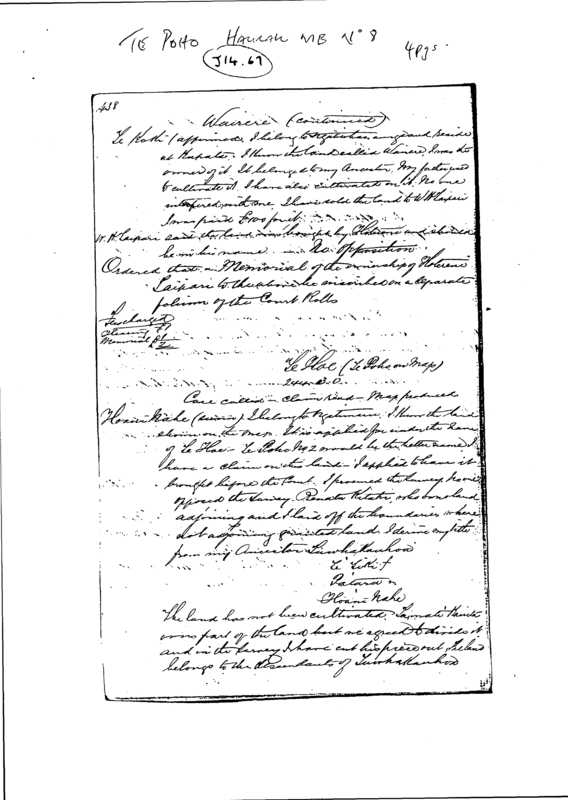 TE POHO HAURAKI MB No 8
4 pgs.
J14.67
438
Wairere (continued)
Te Kuki (affirmed) I belong to and reside
at . I know the land called Wairere. I was the
owner of it. It belonged to my Ancestor. My father used
to cultivate it. I have also cultivated on it. No one
interfered with me. I have sold the land to W H Taipari
I was paid for it.
W. H. Taipari said the land was bought by and should
be in his name. No opposition
Ordered that a Memorial of the ownership of
Taipari to the above be inscribed on a separate
folium of the Court Rolls
Fees charged
Hearing £1
Memorial £1
£2
Te Hoe (Te Poho on Map)
Case called - Claim read - Map produced
Hoani Nahe (sworn) I belong to Ngatimaru. I know the land
shown on the map. It is applied for under the name
of Te Hoe. Te Poho No 2 would be the better name. I
have a claim on this land - I applied to have it
brought before the Court. I procured the survey. No one
opposed the survey. who owns land
adjoining and I laid off the boundaries where
not adjoining land. I derive my title
from my Ancestor Tuwhakauhoa
Te Tiki f
Patara m
Hoani Nahe
The land has not been cultivated.
owns part of the land but we agreed to divide it
and in the survey I have cut his piece out. The land
belongs to the descendants of Tuwhakauhoa